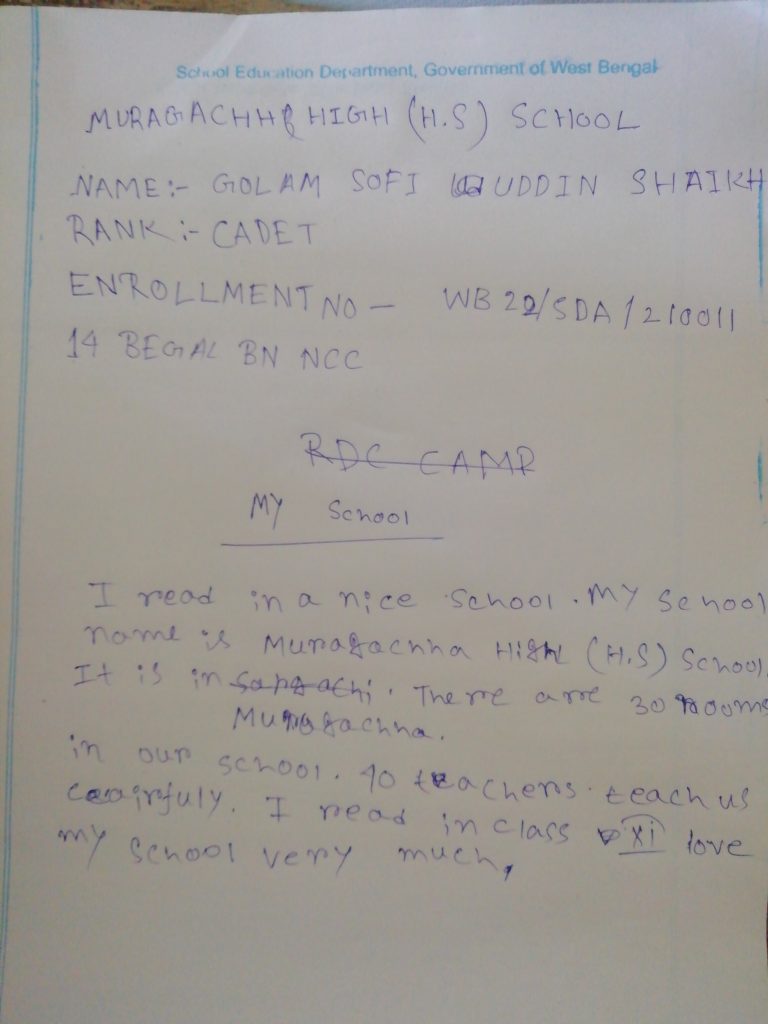 School Education Department, Government of West Bengal
MURAGACHHA HIGH (H.S) SCHOOL
NAME:- GOLAM SOFI UDDIN SHAIKH
RANK :- CADET
ENROLLMENT NO - WB 22/SDA/210011
14 BEGAL BN NCC
RDC CAMP
MY School
I read in a nice school. My school
name is Muragachha High (H.S) School.
It is in Sargachi. There are 30 rooms
Muragachha.
in our school. 40 teachers teach us
cearfuly. I read in class XI love
my school very much,